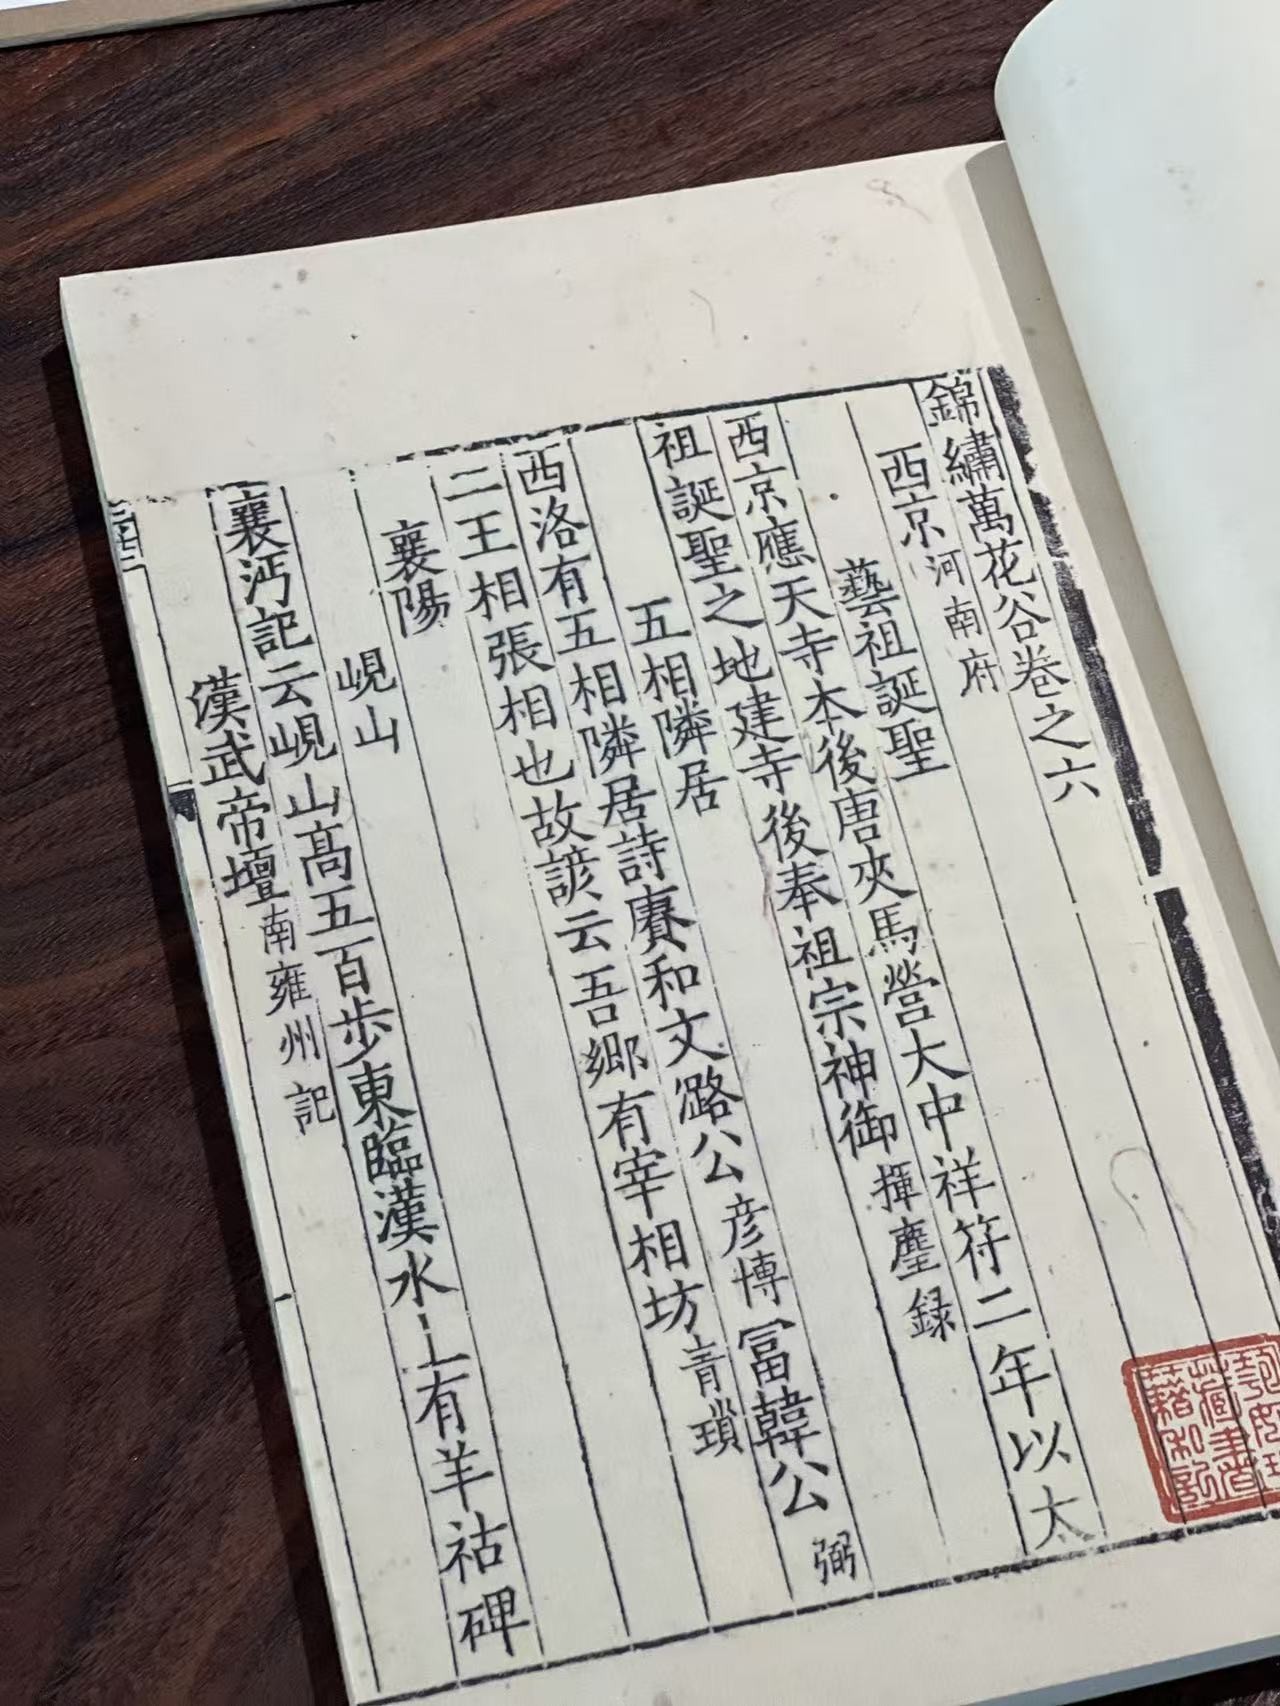 錦繡萬花谷卷之六
西京河南府
藝祖誕聖
西京應天寺本後唐夾馬營大中祥符二年以太
祖誕聖之地建寺後奉祖宗神御揮麈録
五相隣居
西洛有五相隣居詩賡和文潞公彦博冨韓公弼
二王相張相也故諺云吾鄉有宰相坊青瑣
襄陽
峴山
襄沔記云峴山髙五百步東臨漢水上有羊祜碑
漢武帝壇南雍州記
藏書